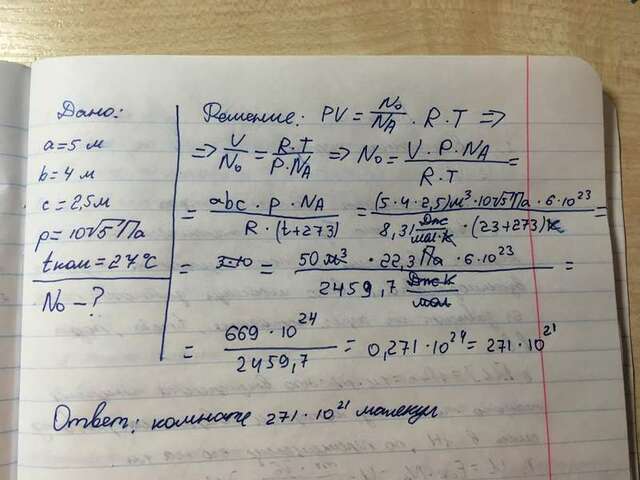 Дано:
a=5 м
b=4 м
c=2,5м
p=10√5 Па
tком=27°C
N₀-?
Решение: PV = N₀/NA · R · T ⇒
⇒ V/N₀ = R·T/P·NA ⇒ N₀ = V·P·NA/R·T =
= abc · p · NA/R·(t+273) = (5·4·2,5)м³·10√5Па·6·10²³/8,31 Дж/мол·К ·(23+273)К =
= 50 м³ · 22,3Па ·6·10²³/2459,7 Дж К/мол =
= 669·10²⁴/2459,7 = 0,271·10²⁴= 271·10²¹
Ответ: комнате 271·10²¹ малекул